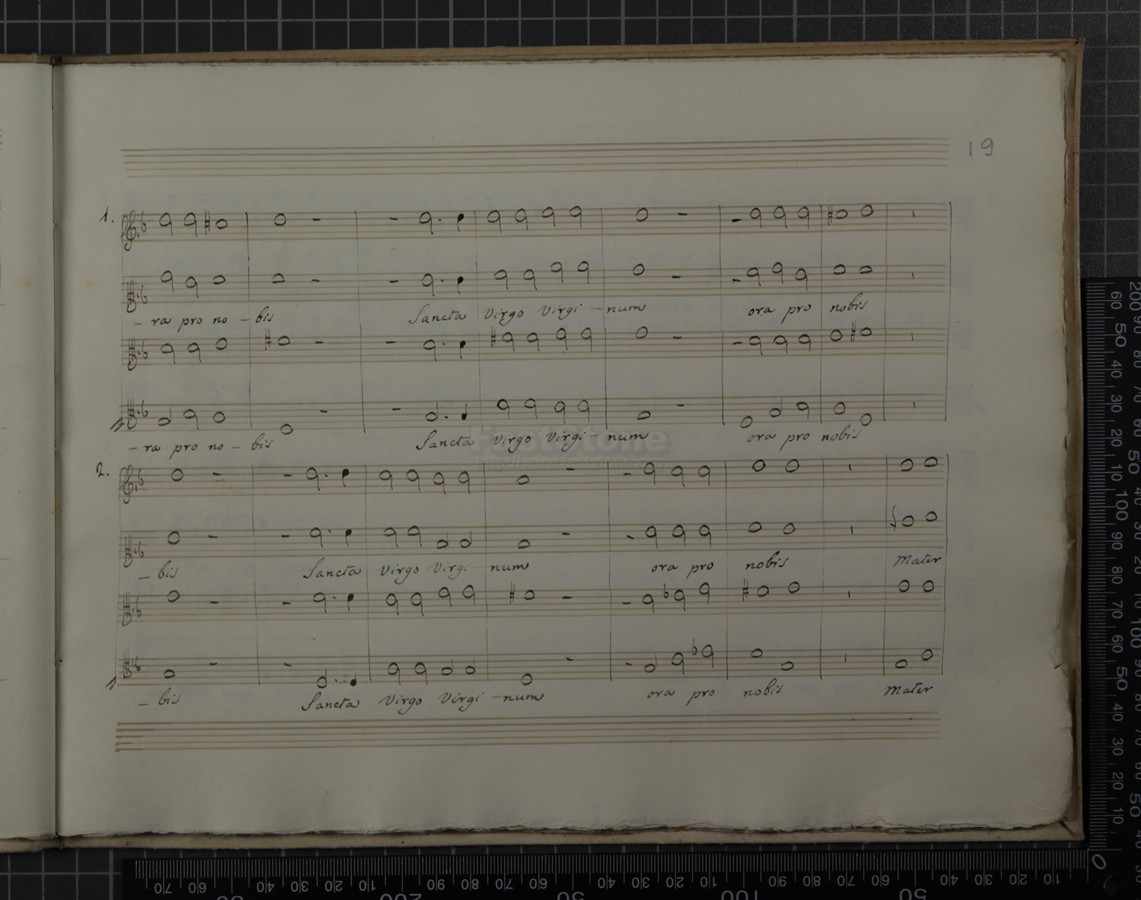 19
1.
- ra pro no - bis Sancta Virgo Virgi - num ora pro nobis
- ra pro no - bis Sancta Virgo Virgi num ora pro nobis
FootStone
2.
- bis Sancta Virgo Virgi num ora pro nobis Mater
- bis Sancta Virgo Virgi - num ora pro nobis Mater
60 50 40 30 20 10 100 90 80 70 60 50 40 30 20 10
0
70 60 40 30 20 10 90 80 70 60 40 30 20 10 90 80 70 60 40 30 20 10